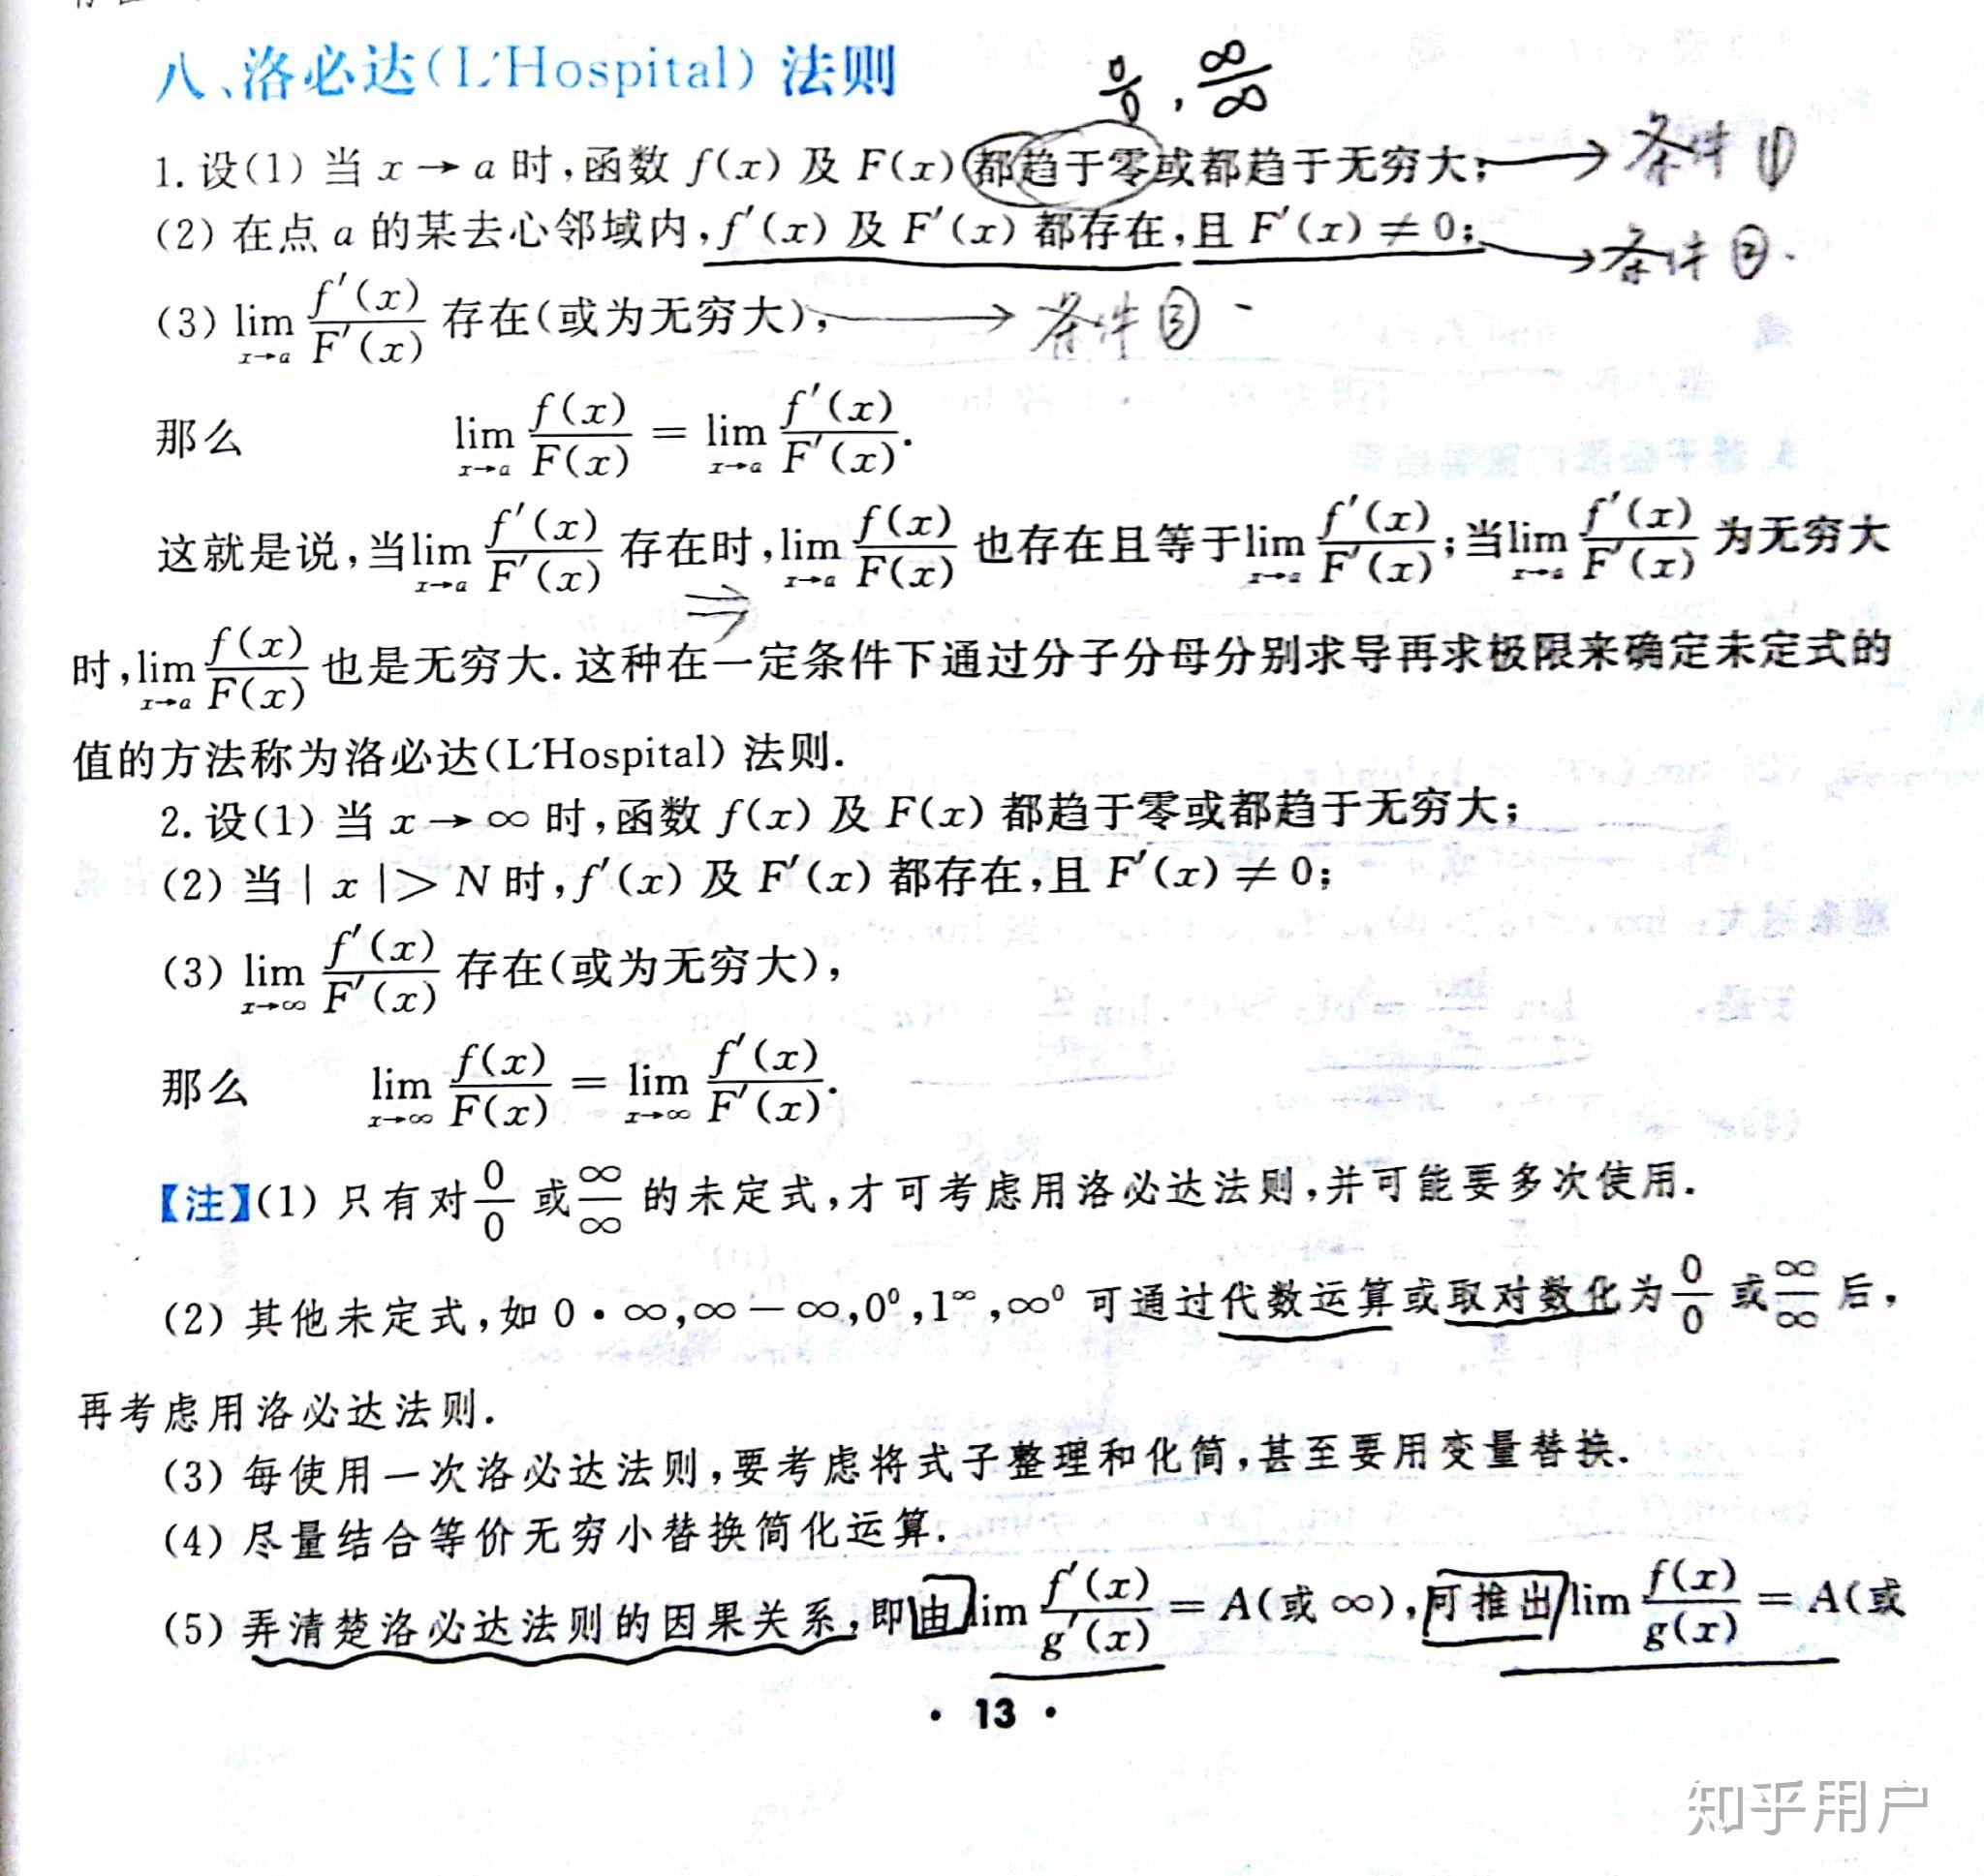 八、洛必达(L'Hospital)法则
0/0, ∞/∞
1. 设(1) 当 x→a 时,函数 f(x) 及 F(x) 都趋于零或都趋于无穷大; → 条件①
(2) 在点 a 的某去心邻域内,f′(x) 及 F′(x) 都存在,且 F′(x) ≠ 0; → 条件②.
(3) lim_{x→a} f′(x)/F′(x) 存在(或为无穷大), → 条件③
那么 lim_{x→a} f(x)/F(x) = lim_{x→a} f′(x)/F′(x).
这就是说,当lim_{x→a} f′(x)/F′(x) 存在时,lim_{x→a} f(x)/F(x) 也存在且等于lim_{x→a} f′(x)/F′(x);当lim_{x→a} f′(x)/F′(x) 为无穷大
⇒
时,lim_{x→a} f(x)/F(x) 也是无穷大. 这种在一定条件下通过分子分母分别求导再求极限来确定未定式的
值的方法称为洛必达(L'Hospital) 法则.
2. 设(1) 当 x→∞ 时,函数 f(x) 及 F(x) 都趋于零或都趋于无穷大;
(2) 当 | x | > N 时,f′(x) 及 F′(x) 都存在,且 F′(x) ≠ 0;
(3) lim_{x→∞} f′(x)/F′(x) 存在(或为无穷大),
那么 lim_{x→∞} f(x)/F(x) = lim_{x→∞} f′(x)/F′(x).
【注】(1) 只有对 0/0 或 ∞/∞ 的未定式,才可考虑用洛必达法则,并可能要多次使用.
(2) 其他未定式,如 0·∞,∞-∞,0⁰,1^∞,∞⁰ 可通过代数运算或取对数化为 0/0 或 ∞/∞ 后,
再考虑用洛必达法则.
(3) 每使用一次洛必达法则,要考虑将式子整理和化简,甚至要用变量替换.
(4) 尽量结合等价无穷小替换简化运算.
(5) 弄清楚洛必达法则的因果关系,即由lim f′(x)/g′(x) = A(或 ∞),可推出lim f(x)/g(x) = A(或
· 13 ·
知乎用户